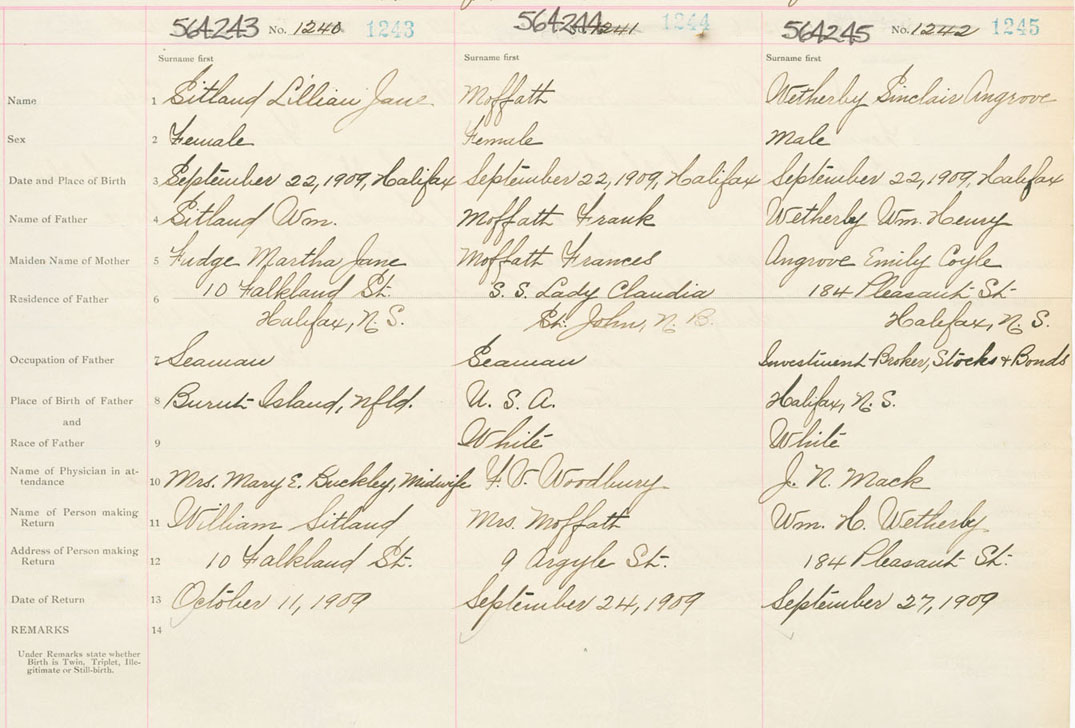 564243 No. 1240 1243 564244 1241 1244 564245 No. 1242 1245
Surname first Surname first Surname first
Name 1 Sitland Lillian Jane Moffath Wetherby Sinclair Angrove
Sex 2 Female Female Male
Date and Place of Birth 3 September 22, 1909, Halifax September 22, 1909, Halifax September 22, 1909, Halifax
Name of Father 4 Sitland Wm. Moffath Frank Wetherby Wm. Henry
Maiden Name of Mother 5 Fudge Martha Jane Moffath Frances Angrove Emily Coyle
Residence of Father 6 10 Falkland St. S.S. Lady Claudia 184 Pleasant St.
Halifax, N.S. St. John, N.B. Halifax, N.S.
Occupation of Father 7 Seaman Seaman Investment Broker, Stocks & Bonds
Place of Birth of Father 8 Burnt Island, Nfld. U.S.A. Halifax, N.S.
and
Race of Father 9 White White
Name of Physician in at-
tendance 10 Mrs. Mary E. Buckley, Midwife F.V. Woodbury J.N. Mack
Name of Person making
Return 11 William Sitland Mrs. Moffath Wm. H. Wetherby
Address of Person making
Return 12 10 Falkland St. 9 Argyle St. 184 Pleasant St.
Date of Return 13 October 11, 1909 September 24, 1909 September 27, 1909
REMARKS 14
Under Remarks state whether
Birth is Twin, Triplet, Ille-
gitimate or Still-birth.